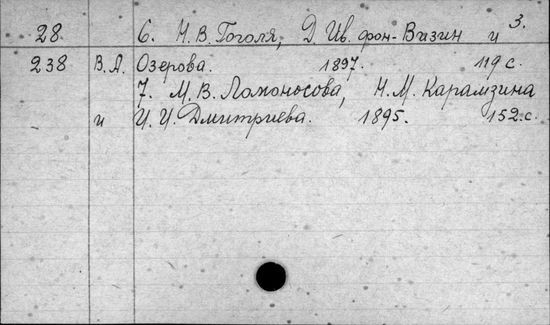 3.
28. 6. Н. В. Гоголя, Д. Ив. фон-Визин и
238 В. А. Озерова. 1897. 119 с.
7. М. В. Ломоносова, Н. М. Карамзина
и И. И. Дмитриева. 1895. 152. с.